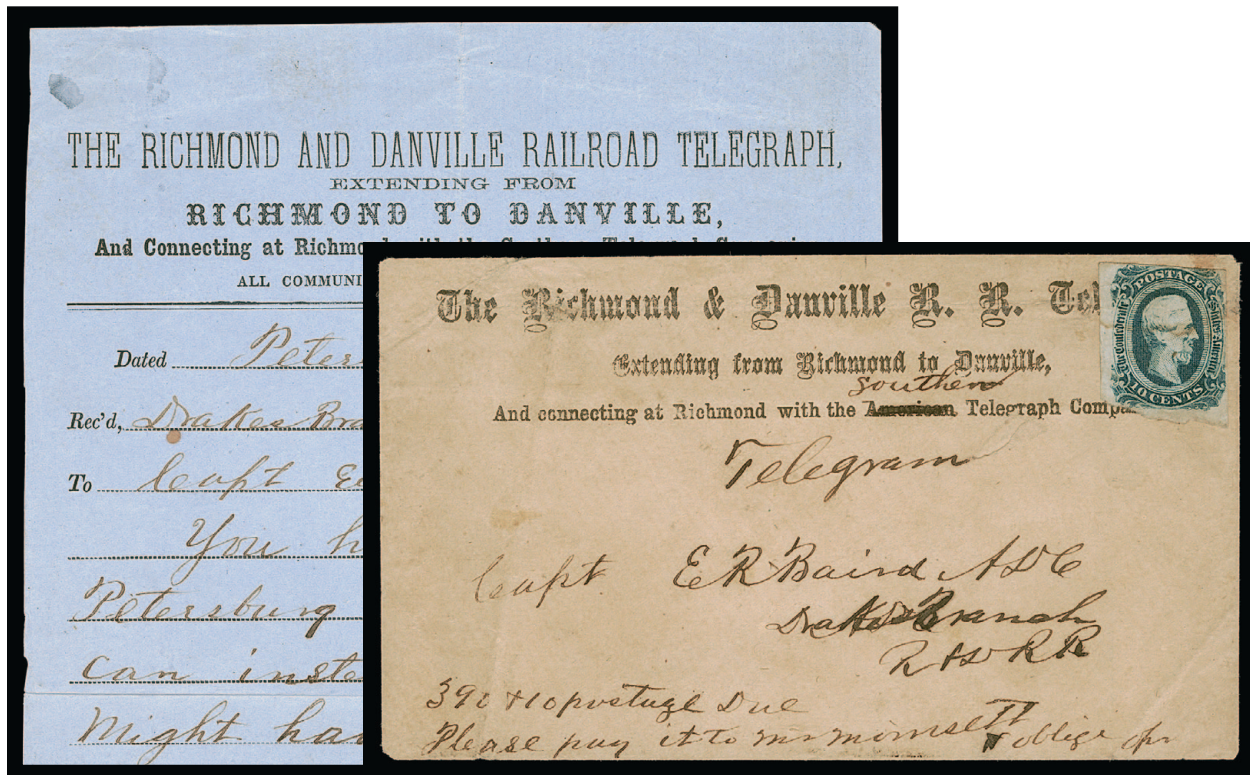 THE RICHMOND AND DANVILLE RAILROAD TELEGRAPH,
EXTENDING FROM
RICHMOND TO DANVILLE,
And Connecting at Richmo
ALL COMMUNI
Dated Peters
Rec'd, Drakes Bra
To Capt
You h
Petersburg
can inste
Might hav
The Richmond & Danville R. R. Tel
Extending from Richmond to Danville,
southern
And connecting at Richmond with the American Telegraph Compa
POSTAGE
The Confederate States America
10 CENTS
Telegram
Capt E R Baird ADC
Drakes Branch
R & D R R
390 & 10 postage Due
Please pay it to Mr & oblige